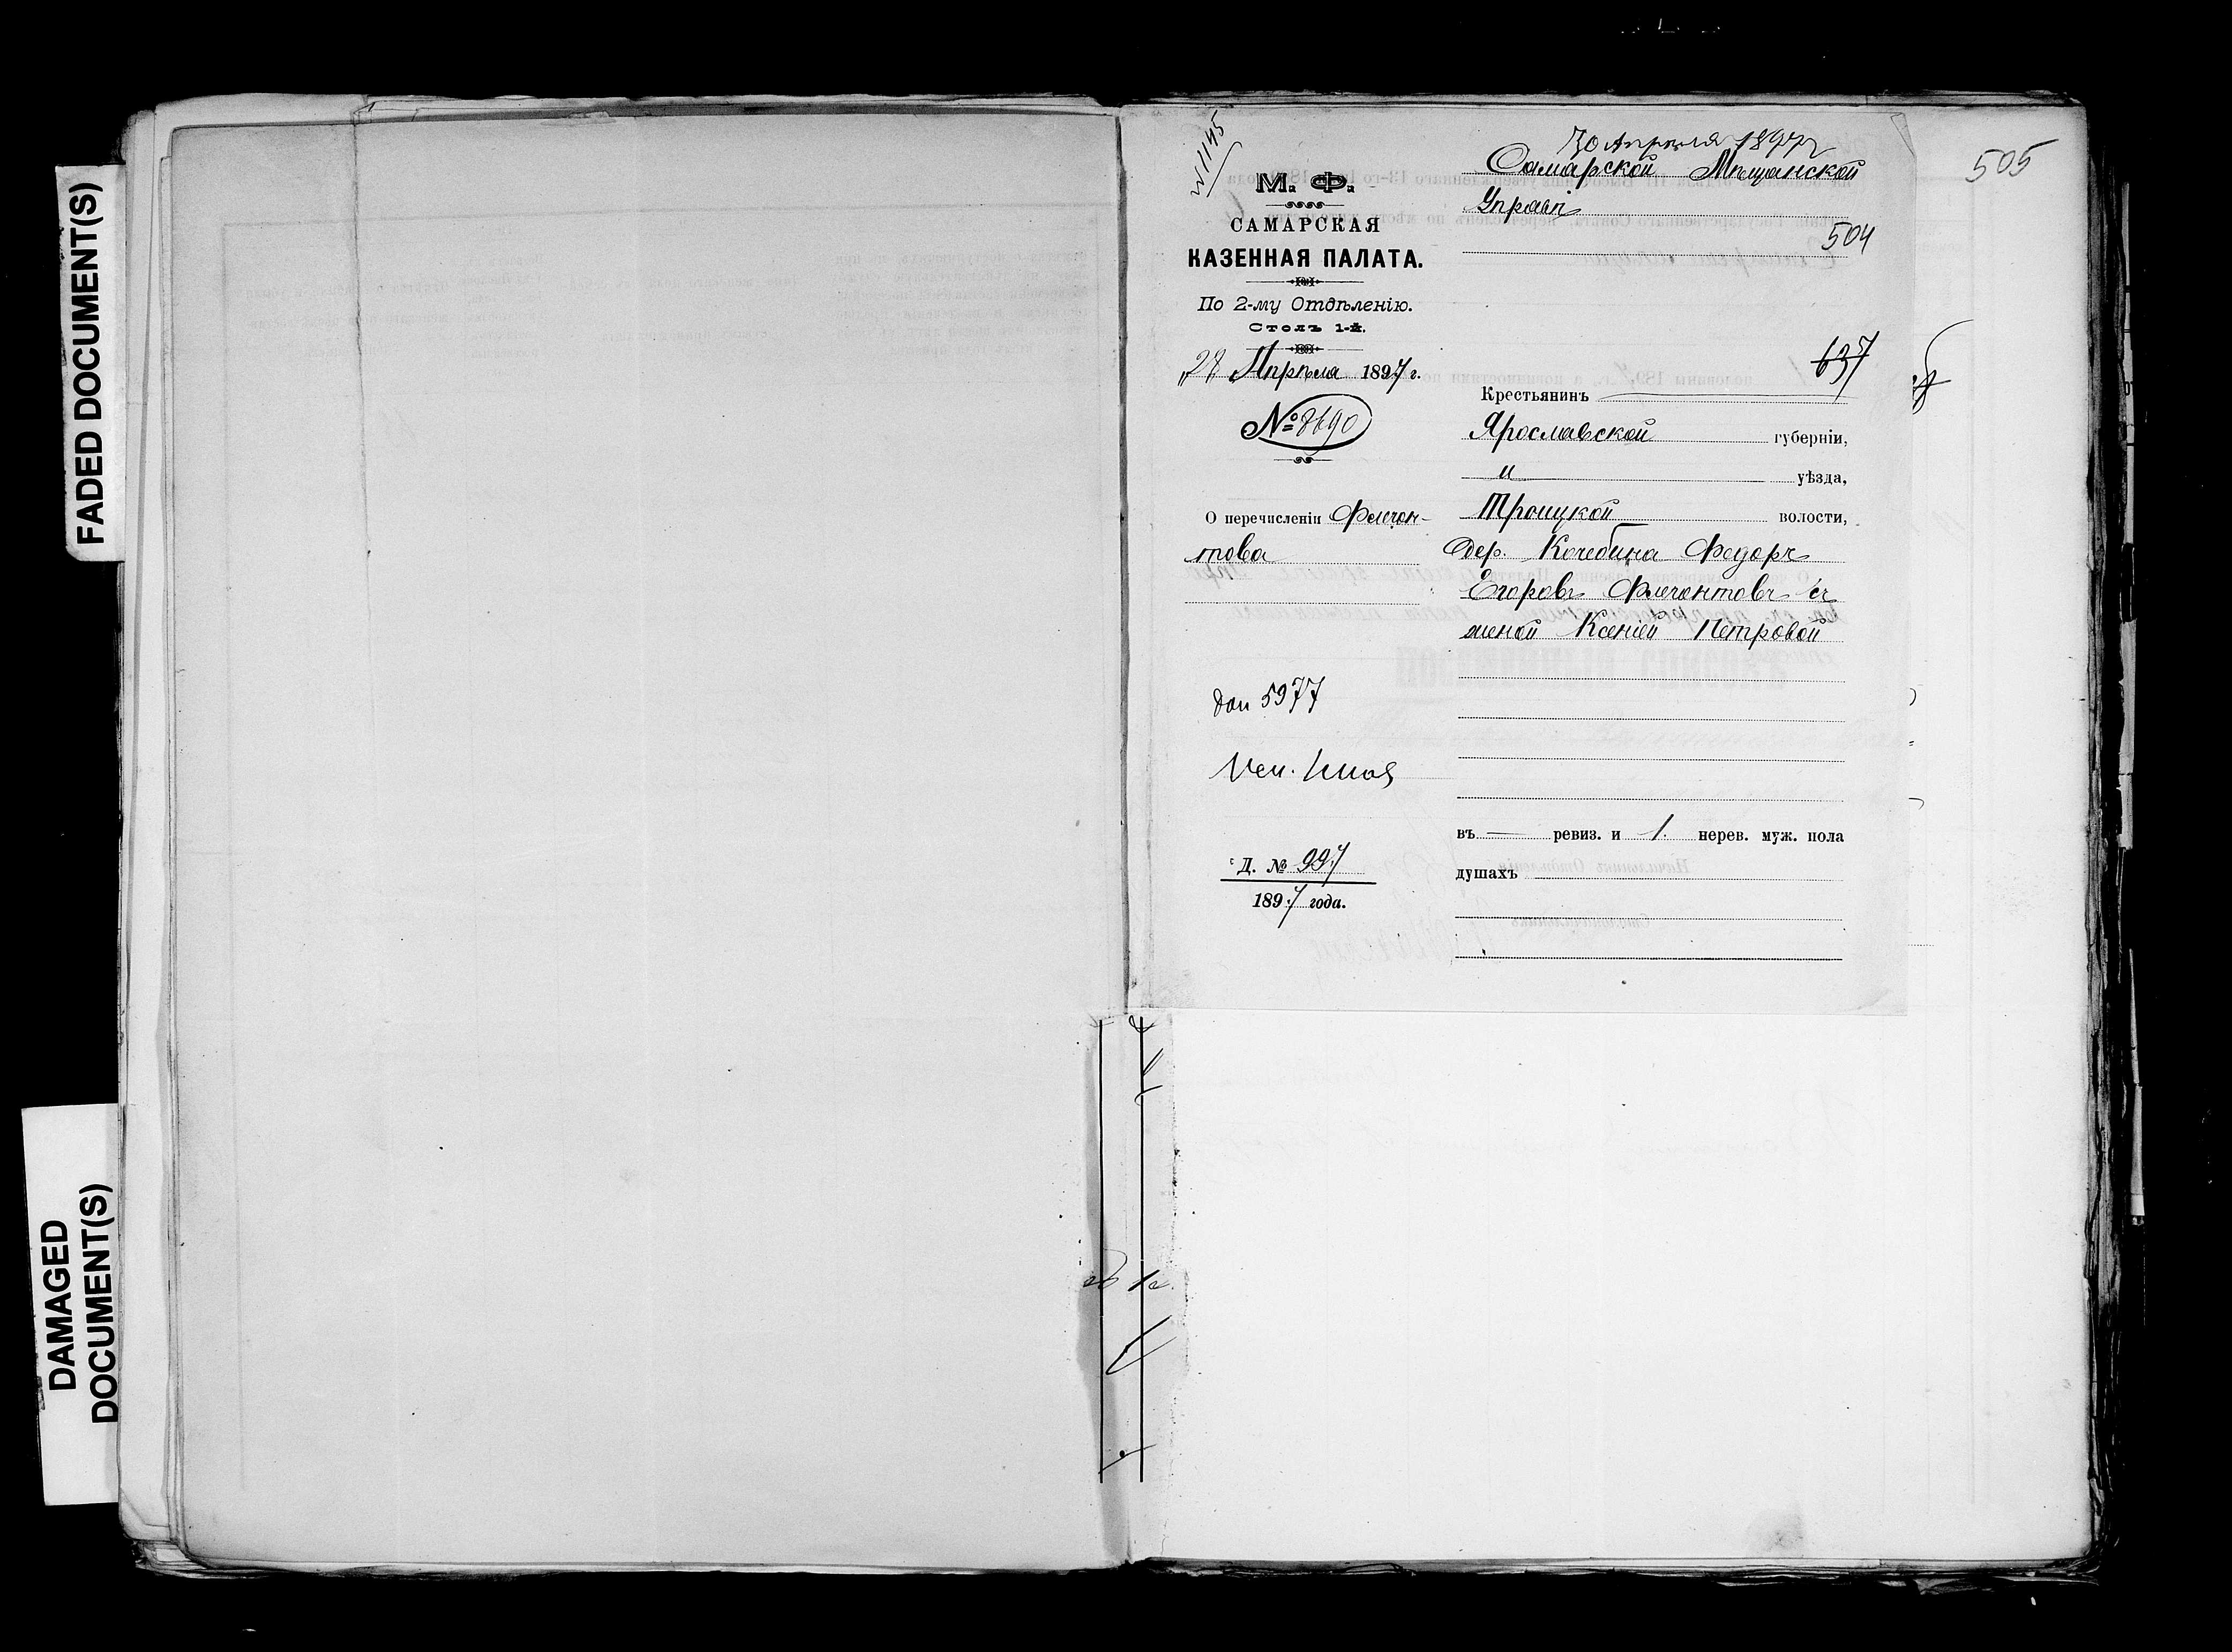 FADED DOCUMENT(S)
DAMAGED
DOCUMENT(S)
№ 1145
М. Ф.
САМАРСКАЯ
КАЗЕННАЯ ПАЛАТА.
По 2-му Отдѣленію.
Столъ 1-й.
„28 Апрѣля 1897 г.
№ 8690
О перечисленіи Флегон-
това
5977
Д. № 997
1897 года.
30 Апрѣля 1897 г
505
Самарской Мѣщанской
Управѣ
504
637
Крестьянинъ
Ярославской губерніи,
и уѣзда,
Троицкой волости,
дер. Кочебина Федоръ
Егоровъ Флегонтовъ съ
женой Ксеніей Петровой
въ — ревиз. и 1. нерев. муж. пола
душахъ